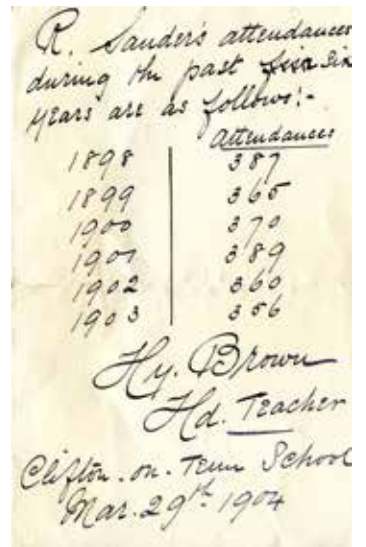 R. Sander's attendances
during the past six
years are as follows:-
Attendances
1898 387
1899 365
1900 370
1901 389
1902 360
1903 356
Hy. Brown
Hd. Teacher
Clifton-on-Teme School
Mar. 29th 1904